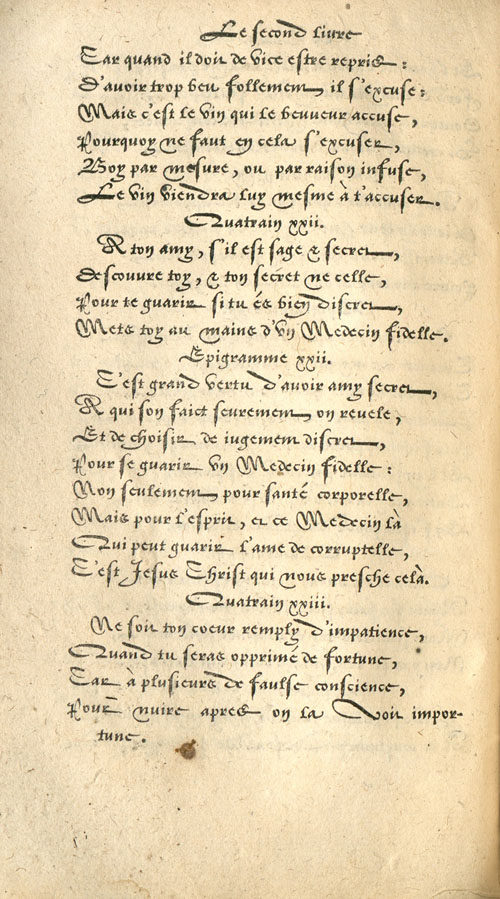 Le second liure
Car quand il doit de vice estre repris :
D'avoir trop beu follement il s'excuse :
Mais c'est le vin qui le beuveur accuse,
Pourquoy ne faut en cela s'excuser,
Boy par mesure, ou par raison infuse,
Le vin viendra luy mesme à t'accuser.
Quatrain xxii.
A ton amy, s'il est sage & secret,
descouvre toy, & ton secret ne celle,
Pour te guarir si tu és bien discret,
Mets toy au mains d'vn Medecin fidelle.
Epigramme xxii.
C'est grand vertu d'avoir amy secret,
A qui son faict seurement on revele,
Et de choisir de iugement discret,
Pour se guarir vn Medecin fidelle :
Non seulement pour santé corporelle,
Mais pour l'esprit, et ce Medecin là
Qui peut guarir l'ame de corruptelle,
C'est Jesus Christ qui nous presche celà.
Quatrain xxiii.
Ne soit ton coeur remply d'impatience,
Quand tu seras opprimé de fortune,
Car à plusieurs de faulse conscience,
Pour nuire apres on la voit impor-
tune.